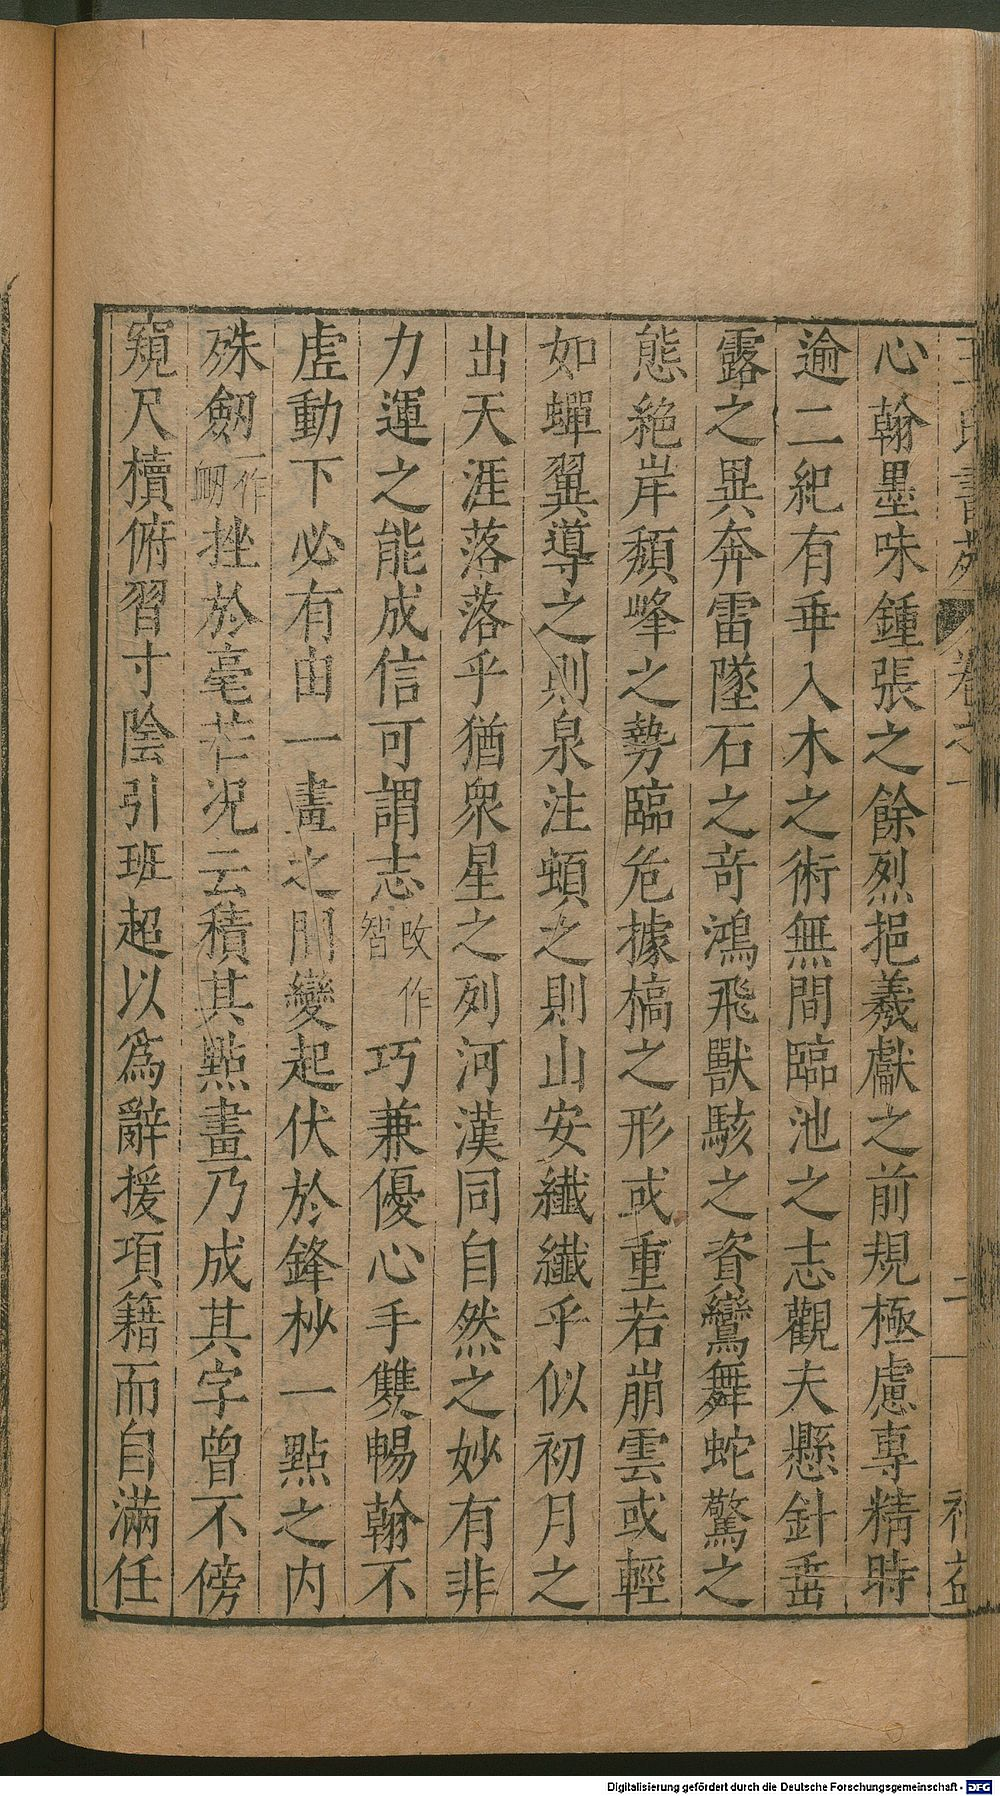 王氏書苑 卷之一 二
心翰墨味鍾張之餘烈挹羲獻之前規極慮專精時
逾二紀有乖入木之術無間臨池之志觀夫懸針垂
露之異奔雷墜石之奇鴻飛獸駭之資鸞舞蛇驚之
態絶岸頹峰之勢臨危據槁之形或重若崩雲或輕
如蟬翼導之則泉注頓之則山安纖纖乎似初月之
出天涯落落乎猶衆星之列河漢同自然之妙有非
力運之能成信可謂志改作智巧兼優心手雙暢翰不
虛動下必有由一畫之間變起伏於鋒杪一點之内
殊劒一作衂挫於毫芒况云積其點畫乃成其字曾不傍
窺尺櫝俯習寸陰引班超以爲辭援項籍而自滿任
Digitalisierung gefördert durch die Deutsche Forschungsgemeinschaft - DFG